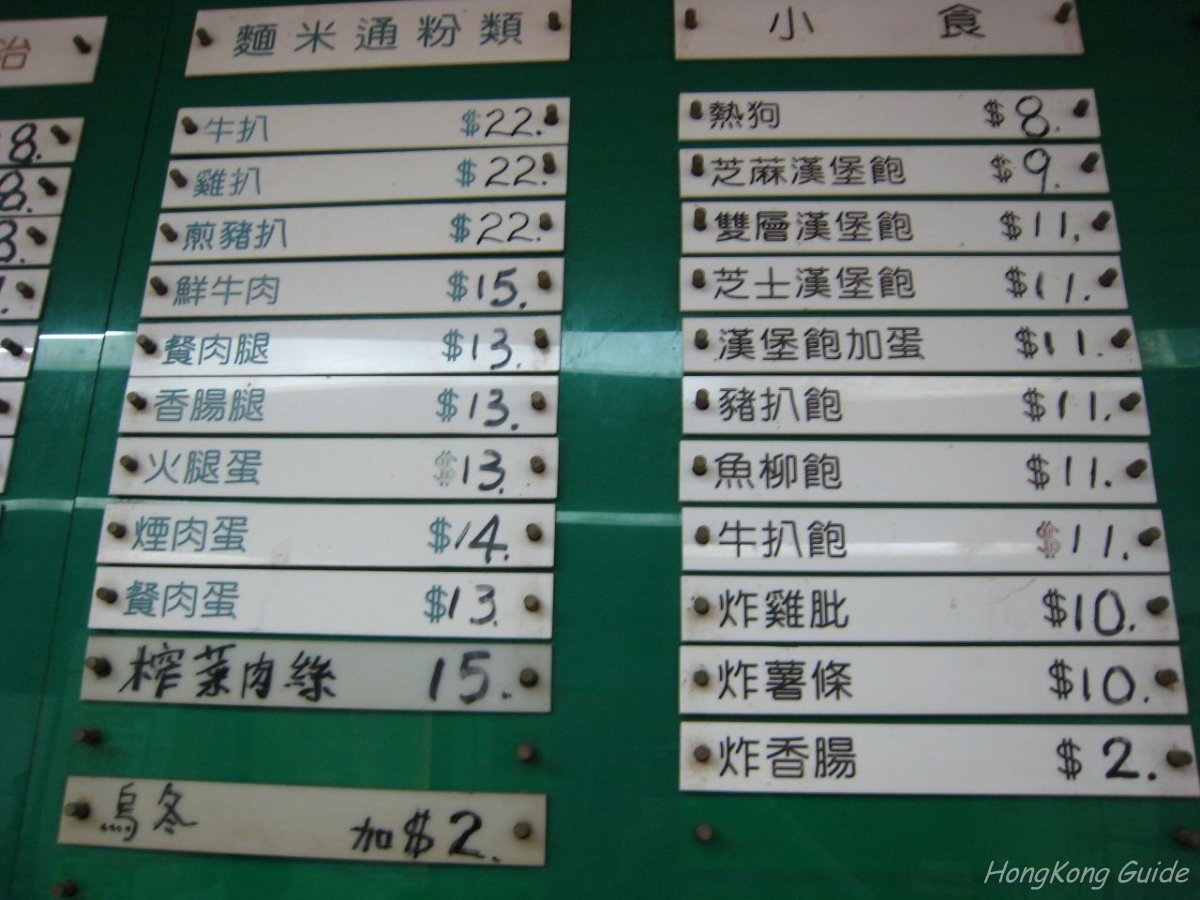 治
8.
8.
8.
麵米通粉類
牛扒 $22.
雞扒 $22.
煎豬扒 $22.
鮮牛肉 $15.
餐肉腿 $13.
香腸腿 $13.
火腿蛋 $13.
煙肉蛋 $14.
餐肉蛋 $13.
榨菜肉絲 15.
烏冬 加$2.
小食
熱狗 $8.
芝蔴漢堡飽 $9.
雙層漢堡飽 $11.
芝士漢堡飽 $11.
漢堡飽加蛋 $11.
豬扒飽 $11.
魚柳飽 $11.
牛扒飽 $11.
炸雞肶 $10.
炸薯條 $10.
炸香腸 $2.
HongKong Guide